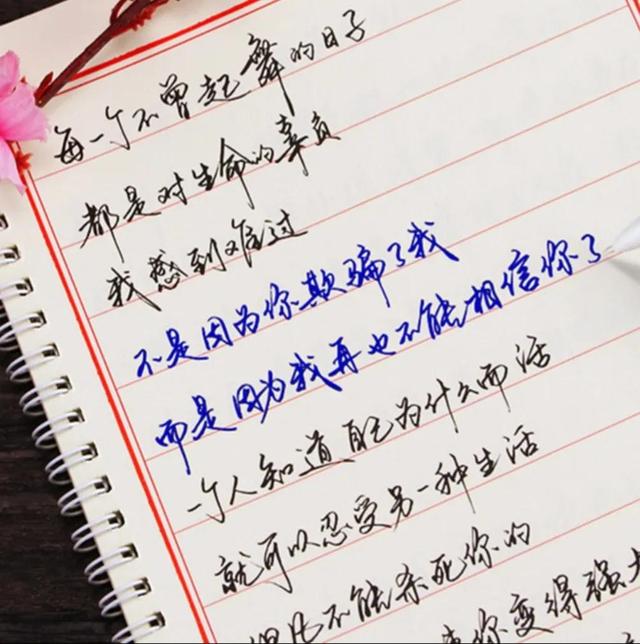 每一个不曾起舞的日子
都是对生命的辜负
我感到难过
不是因为你欺骗了我
而是因为我再也不能相信你了
一个人知道自己为什么而活
就可以忍受另一种生活
但凡不能杀死你的
你变得强大